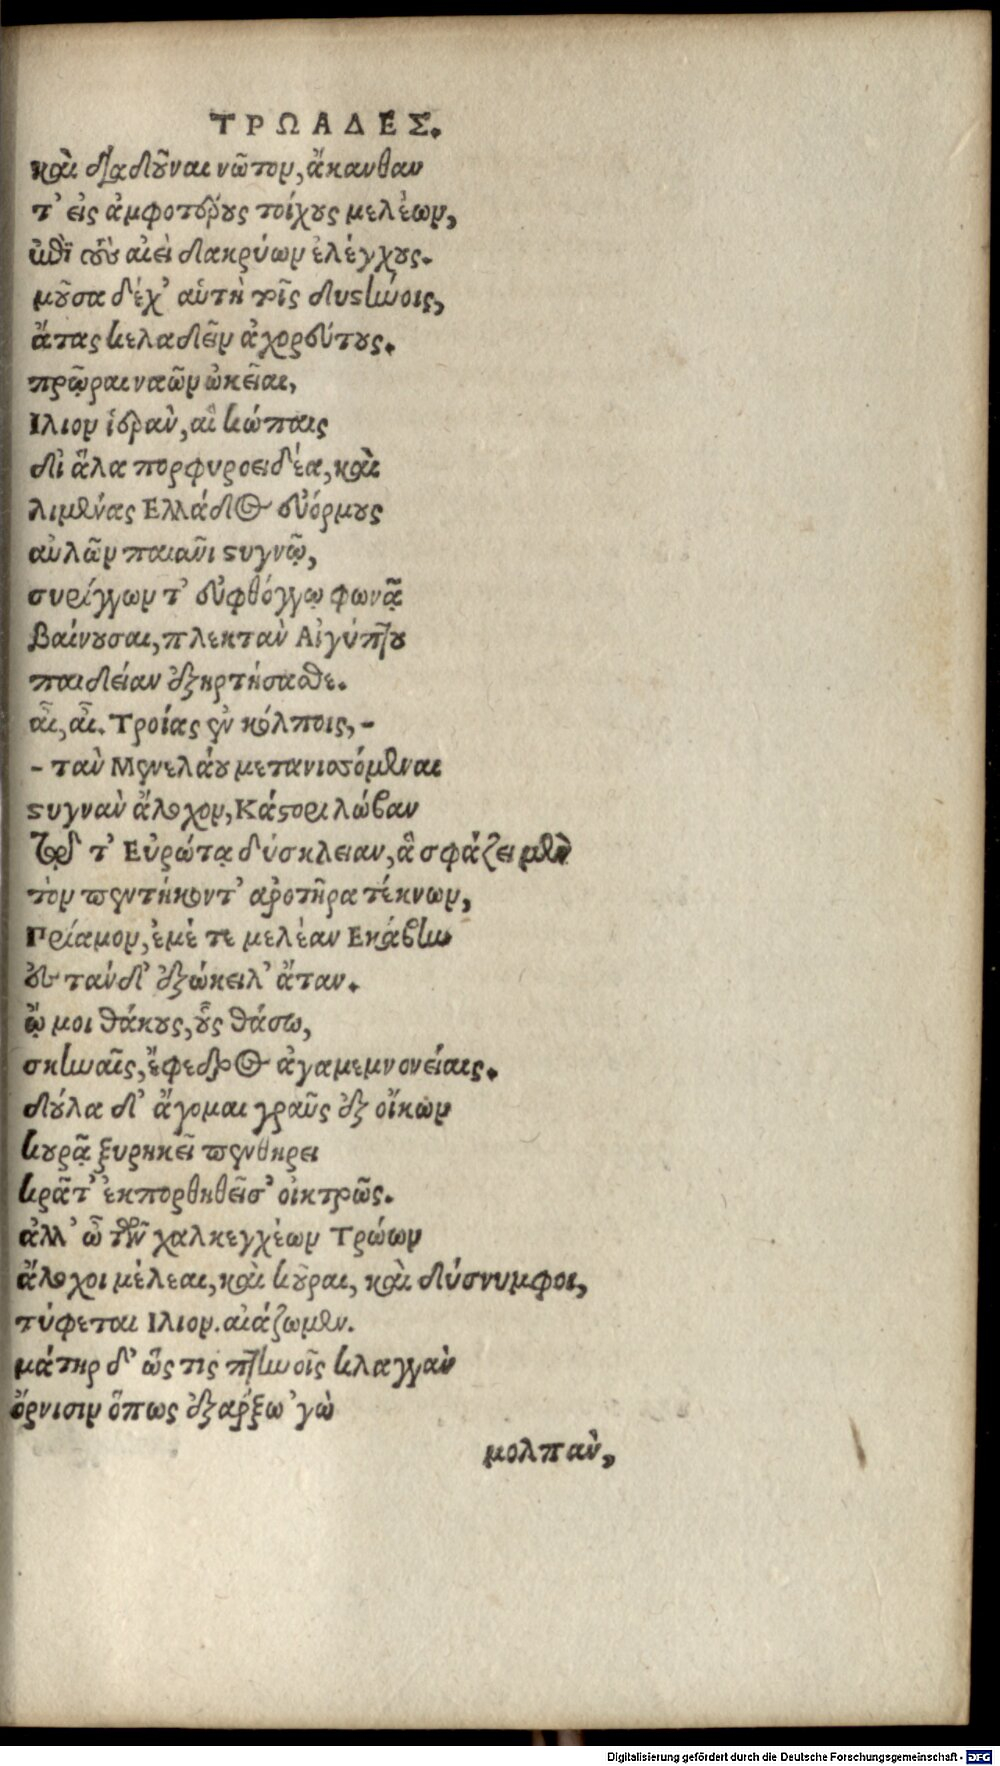 ΤΡΩΑΔΕΣ.
καὶ διαδοῦναι νῶτον, ἄκανθαν
τ' εἰς ἀμφοτέρους τοίχους μελέων,
ἐπὶ σοὺς αἰεὶ δακρύων ἐλέγχους.
μοῦσα δέχ' αὑτὴ τοῖς δυστήνοις,
ἄτας κελαδεῖν ἀχορεύτους.
πρῷραι ναῶν ὠκεῖαι,
Ιλιον ἱερὰν, αἳ κώπαις
δι ἅλα πορφυροειδέα, καὶ
λιμένας Ελλάδος εὐόρμους
αὐλῶν παιᾶνι στυγνῷ,
συρίγγων τ' εὐφθόγγῳ φωνᾷ
βαίνουσαι, πλεκτὰν Αἰγύπτου
παιδείαν ἐξηρτήσασθε.
αἶ, αἶ. Τροίας ἐν κόλποις, -
- τὰν Μενελάου μετανισόμεναι
στυγνὰν ἄλοχον, Κάστορι λώβαν
τῷ τ' Εὐρώτᾳ δύσκλειαν, ἃ σφάζει μὲν
τὸν πεντήκοντ' ἀροτῆρα τέκνων,
Πρίαμον, ἐμέ τε μελέαν Εκάβην
ἐς τάνδ' ἐξώκειλ' ἄταν.
ᾤ μοι θάκους, οὓς θάσσω,
σκηναῖς, ἔφεδρος ἀγαμεμνονείαις.
δούλα δ' ἄγομαι γραῦς ἐξ οἴκων
κουρᾷ ξυρηκεῖ πενθηρει
κρᾶτ' ἐκπορθηθεῖσ' οἰκτρῶς.
ἀλλ' ὦ τῶν χαλκεγχέων Τρώων
ἄλοχοι μέλεαι, καὶ κοῦραι, καὶ δύσνυμφοι,
τύφεται Ιλιον. αἰάζωμεν.
μάτηρ δ' ὥς τις πτηνοῖς κλαγγὰν
ὄρνισιν ὅπως ἐξάρξω 'γὼ
μολπὰν,
Digitalisierung gefördert durch die Deutsche Forschungsgemeinschaft - DFG